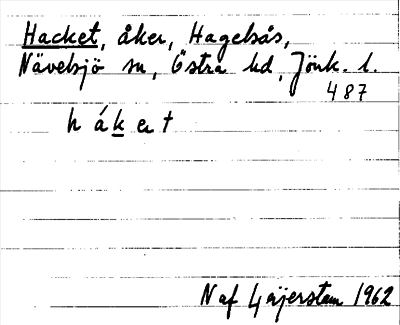 Hacket, åker, Hagelsås,
Nävelsjö sn, Östra hd, Jönk. l.
487
háket
N af Geijerstam 1962